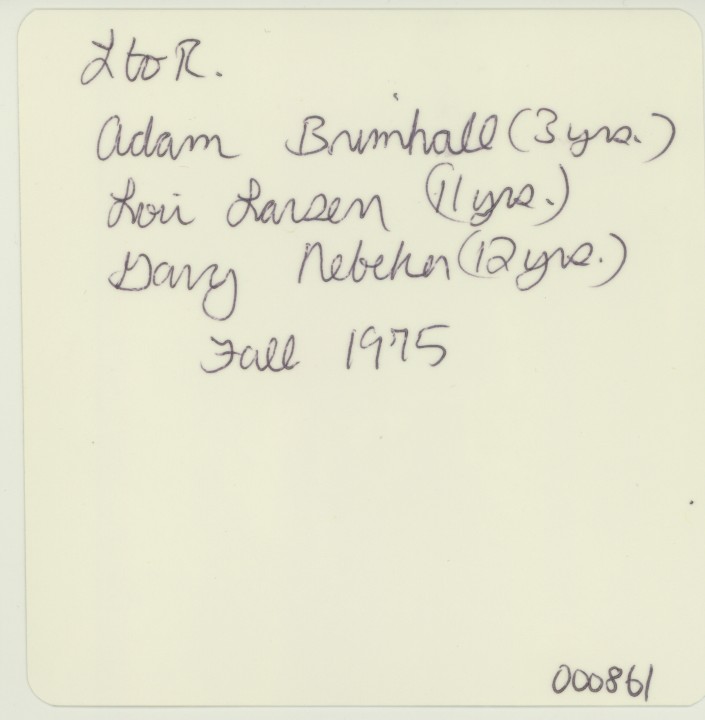 L to R.
Adam Brimhall (3 yrs.)
Lori Larsen (11 yrs.)
Gary Nebeker (12 yrs.)
Fall 1975
000861